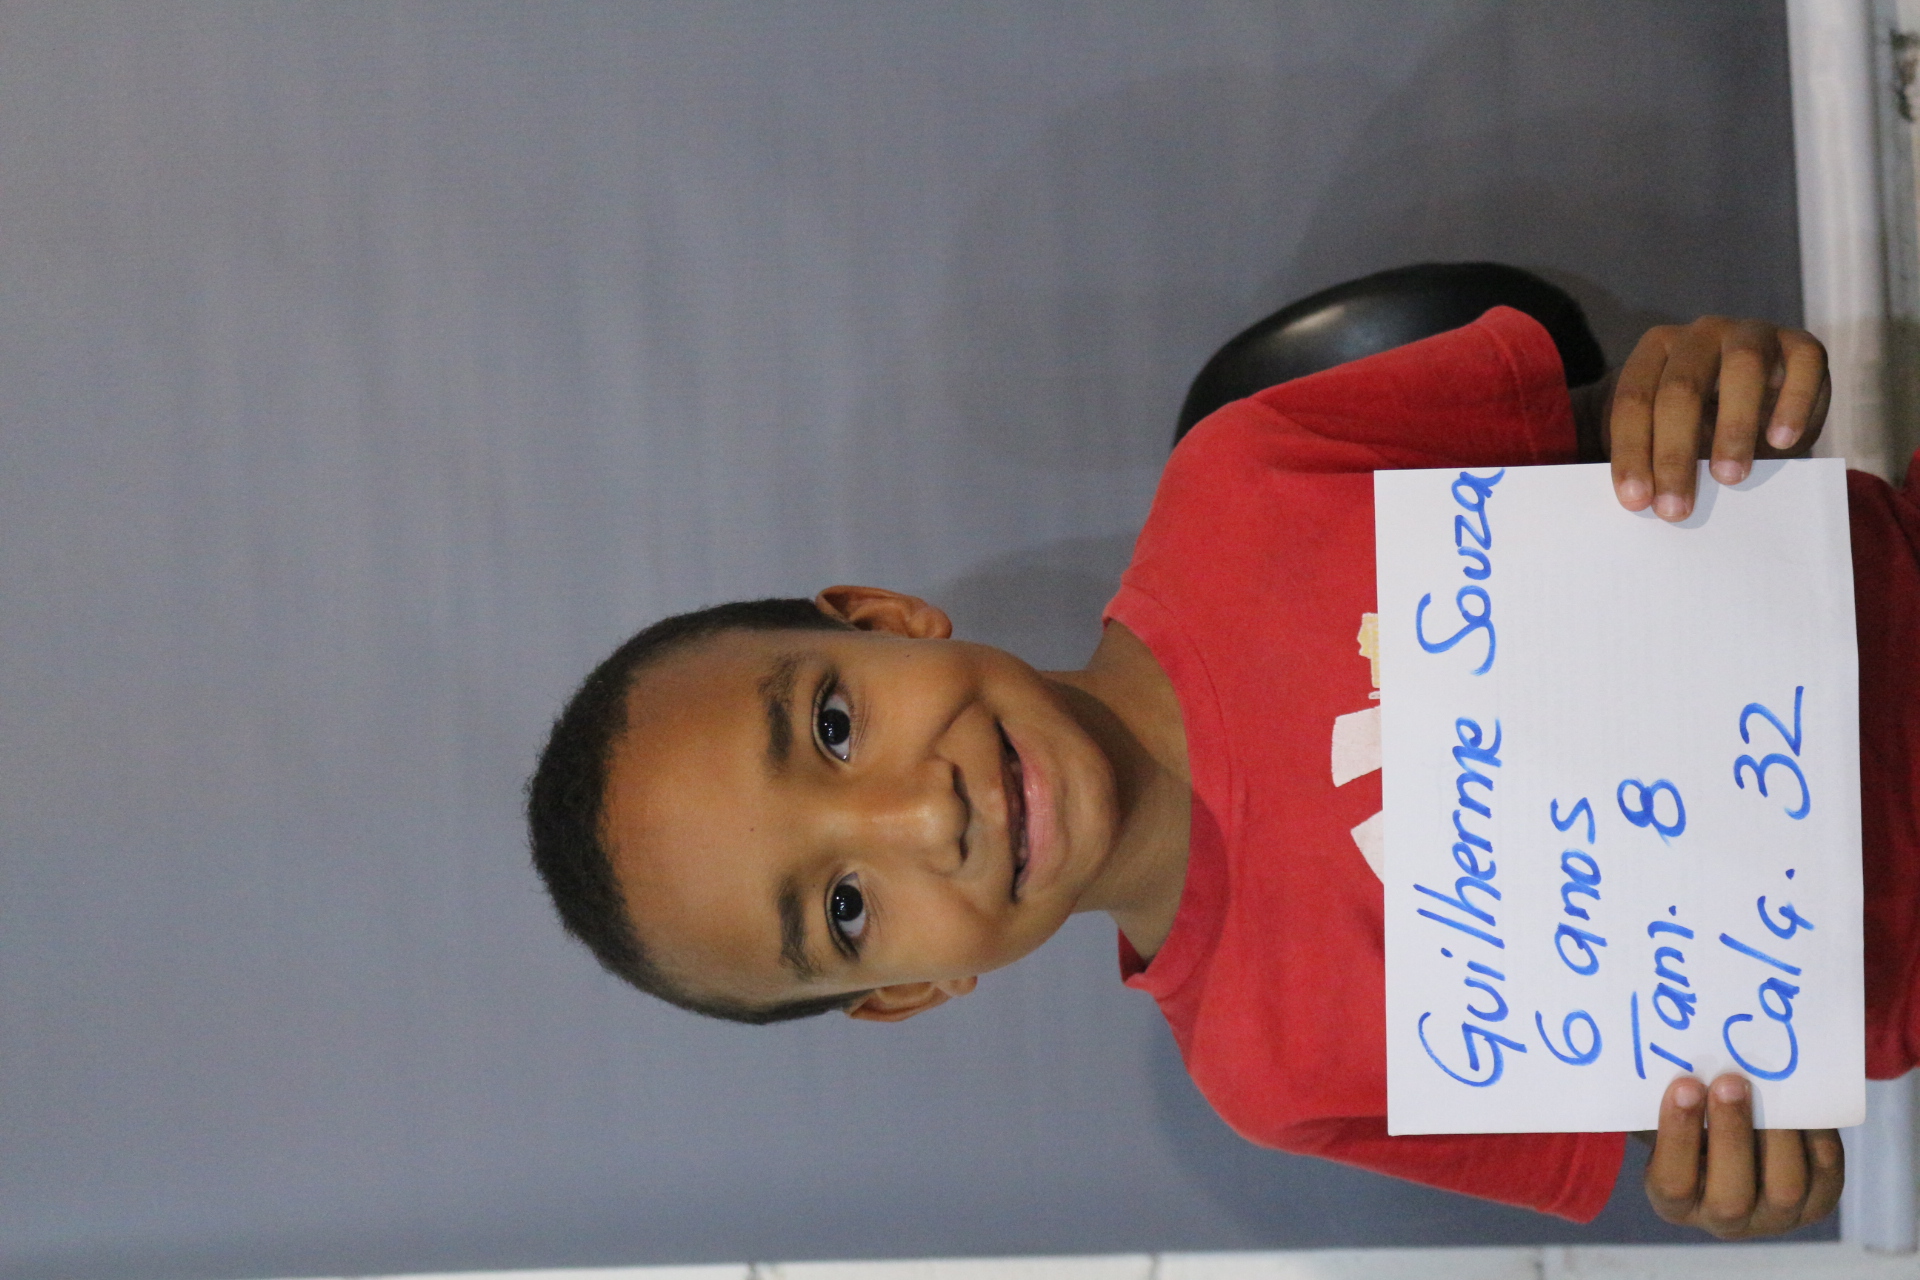 Guilherme Souza
6 anos
Tam. 8
Calç. 32